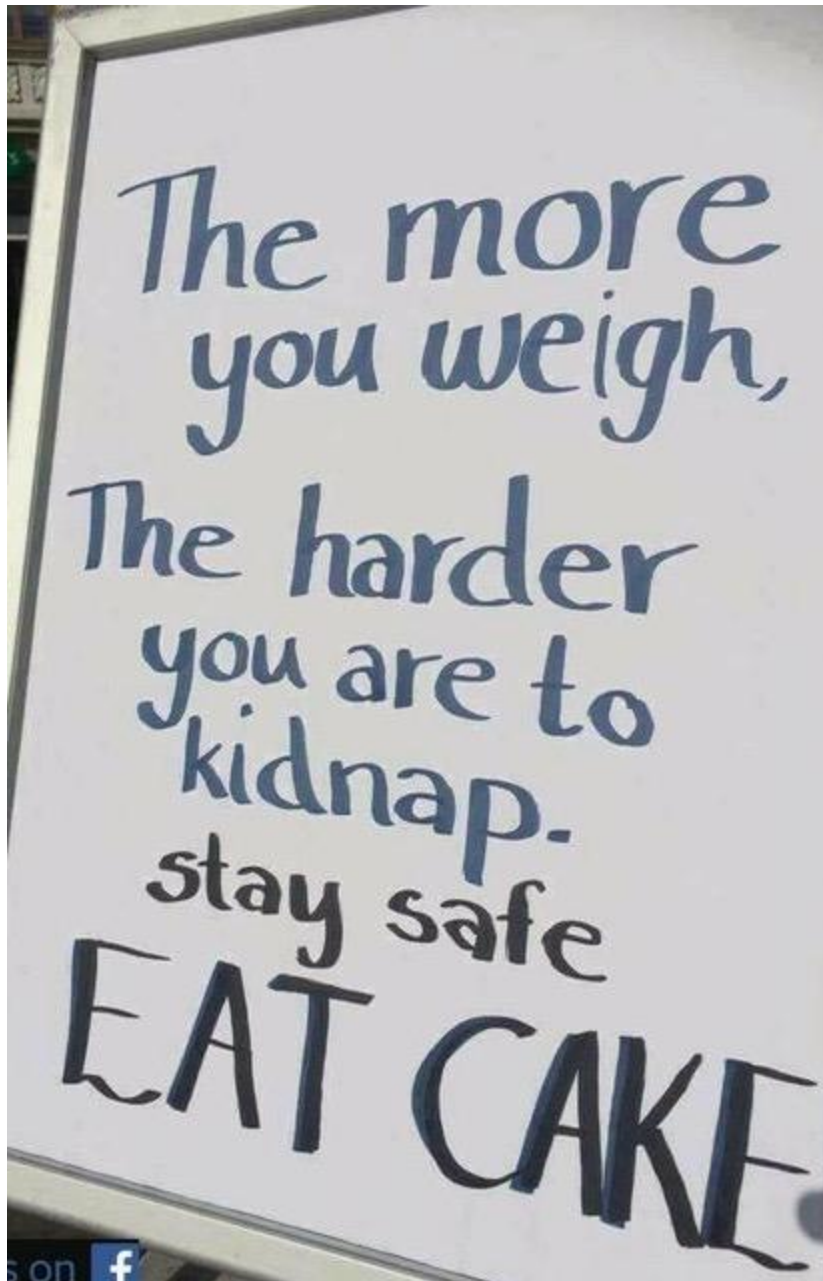 The more
you weigh,
The harder
you are to
kidnap.
stay safe
EAT CAKE.
s on f